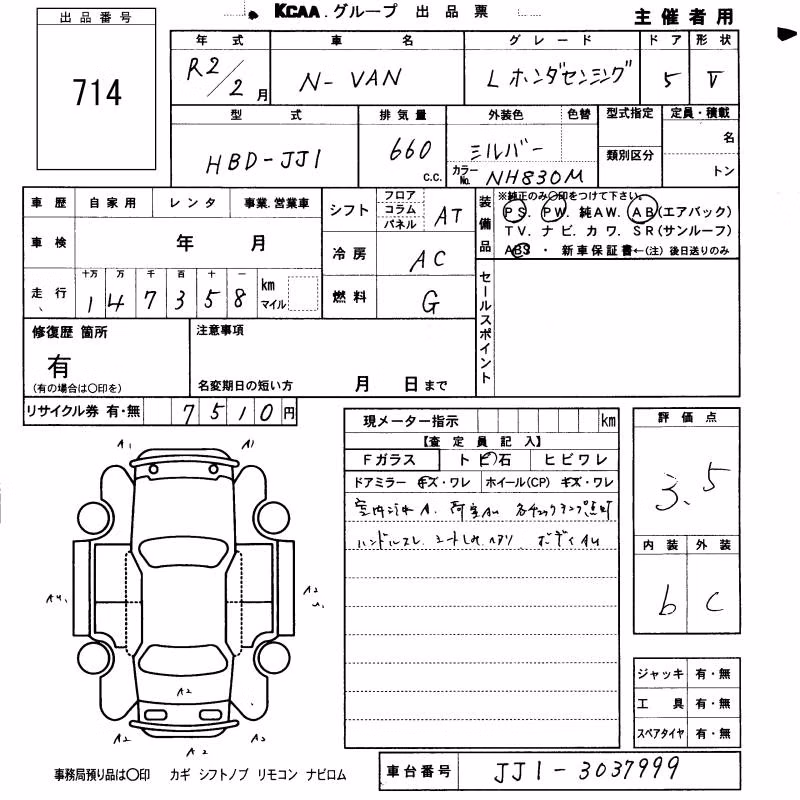 KCAA. グループ 出品票
主催者用
出品番号
714
年式 車名 グレード ドア 形状
R2/2月 N-VAN L ホンダセンシング 5 V
型式 排気量 外装色 色替 型式指定 定員・積載
HBD-JJ1 660 C.C. シルバー 類別区分 名
カラーNo. NH830M トン
車歴 自家用 レンタ 事業.営業車
車検 年 月
十万 万 千 百 十 一
走行 1 4 7 3 5 8 km マイル
シフト フロア コラム パネル AT
冷房 AC
燃料 G
装備品
※純正のみ○印をつけて下さい。
PS. PW. 純AW. AB(エアバック)
TV. ナビ. カワ. SR(サンルーフ)
ABS ・ 新車保証書←(注) 後日送りのみ
セールスポイント
修復歴 箇所
有
(有の場合は○印を)
注意事項
名変期日の短い方 月 日まで
リサイクル券 有・無 7510円
現メーター指示 km
【査定員記入】
Fガラス トビ石 ヒビワレ
ドアミラー キズ・ワレ ホイール(CP) キズ・ワレ
室内汚れ A. 荷室AU 各チェックランプ点灯
ハンドルスレ. シート ヘタリ. ボディAU
評価点
3.5
内装 外装
b C
A1 A1
A4. A2
A2
A2 A2 A2
ジャッキ 有・無
工具 有・無
スペアタイヤ 有・無
事務局預り品は○印 カギ シフトノブ リモコン ナビロム
車台番号 JJ1-3037999